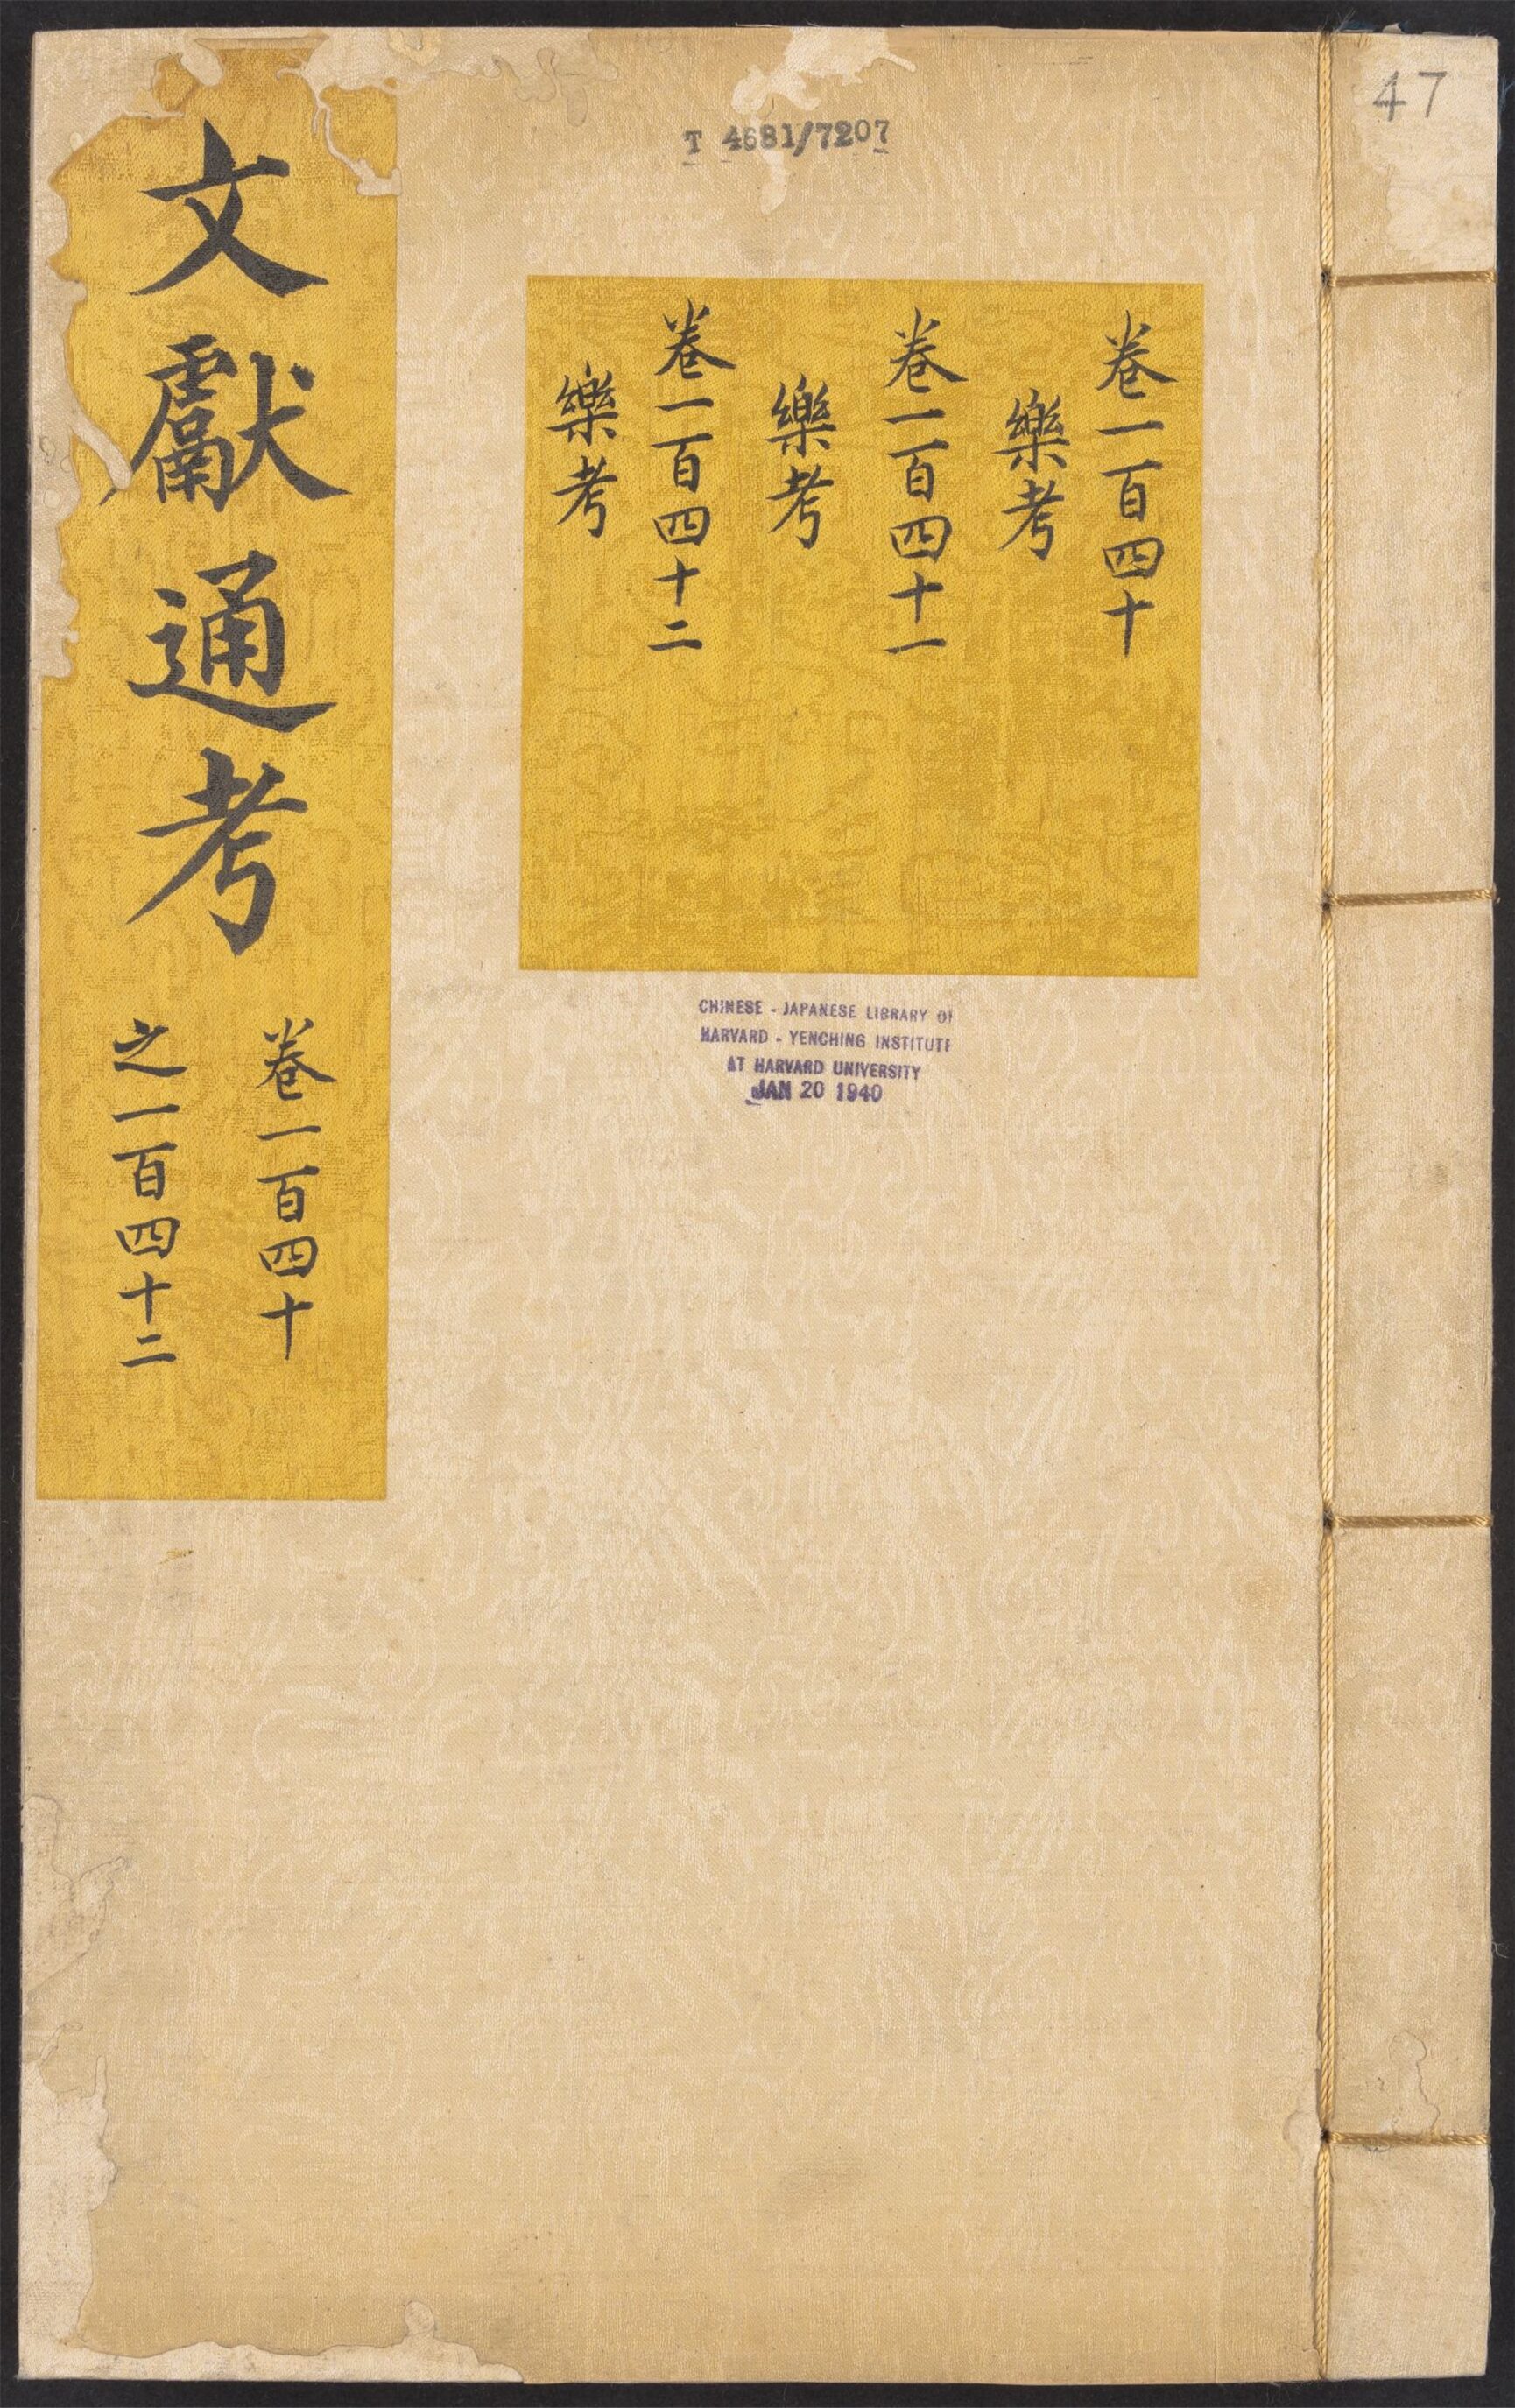 47
T 4681/7207
卷一百四十
樂考
卷一百四十一
樂考
卷一百四十二
樂考
文獻通考
卷一百四十
之一百四十二
CHINESE - JAPANESE LIBRARY OF
HARVARD - YENCHING INSTITUTE
AT HARVARD UNIVERSITY
JAN 20 1940